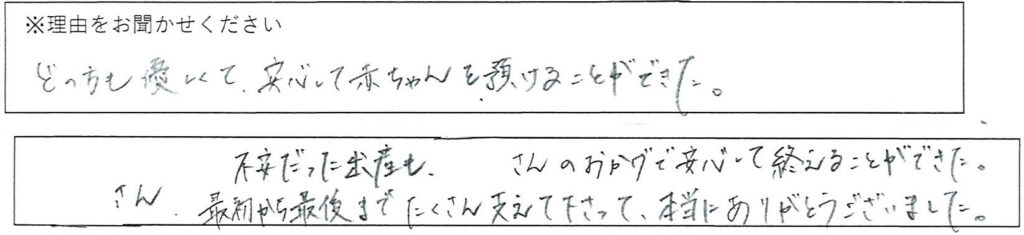 ※理由をお聞かせください
どの方も優しくて、安心して赤ちゃんを預けることができた。
不安だった出産も、 さんのおかげで安心して終えることができた。
さん、最初から最後までたくさん支えて下さって、本当にありがとうございました。